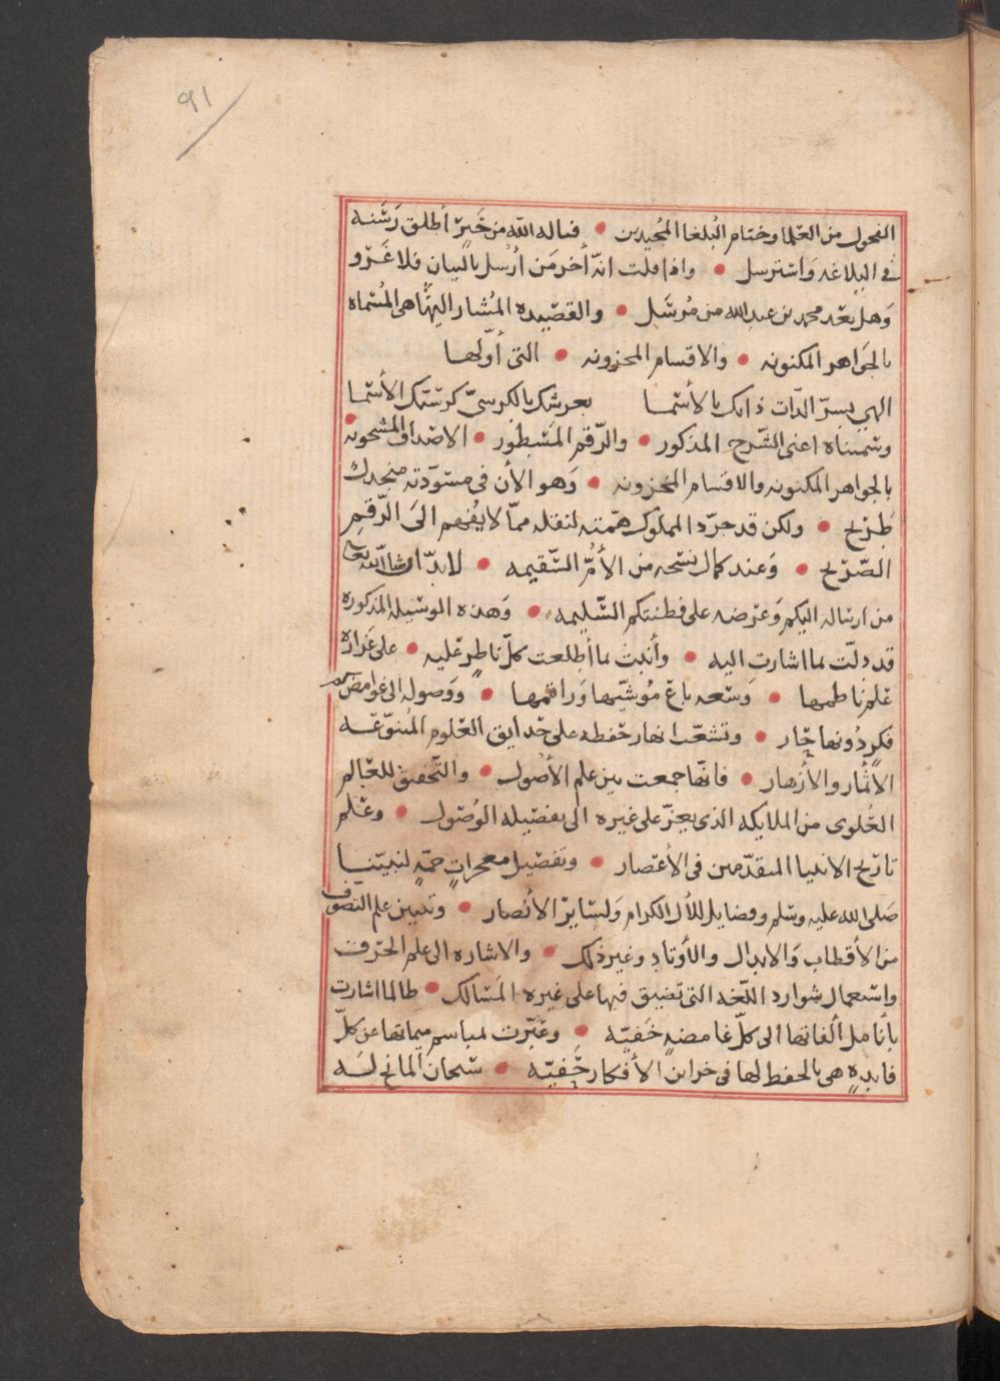 ٩١
الفحول من العلما وختام البلغا المجيدين • فياله الله من خَبِرّ أطلق رَسَنه
في البلاغه وَاسْترسل • واذا قلت انّه أخر مَن أرْسل بالبيان فلا غَرْو
وَهل بعْد محمد بن عبد الله من مُرسَل • والقصيده المُشار اليهَا هى المُسَماه
بالجَواهر المكنونه • والاقسام المخزونه • التى أوّلها
الهي بسرّ الذّات ذاتك بالأسْما بعرشك بالكرسىّ كرسّتك الأسْما
وسَميناه اعنى الشّرح المذكور • والرّقم المَسْطور • الاصْداف المشحونه •
بالجواهر المكنونه والاقسام المخزونه • وَهو الأن فى مسَوّدته
طَرْح • ولكن قد جرّد المملوك همّته لنقله ممّا لا يُفهم الىَ الرّقم
الصّرْح • وَعند كمال نسْخه من الأمّ السّقيمه • لا بدّ ان شا الله تعا
من ارساله اليكم وَعرْضه على فطنتكم السّليمه • وَهذه الوسيله المذكوره
قد دلّت لما اشارت اليه • وأنبت لما أطلعت كلّ ناظر عَليه • على غَزارة
عَلم ناظمها • وَسَعه باع مُوشّيها وَراقمها • ووَصوله الى غوامض
فكر دُونها بحَار • وتشعّب انهار حفظه على حَدايق العْلوم المُتنوّعَه
الأثمار والأزْهار • فانّها جمعت بين علم الأصُول • والتّحقيق للعَالم
العُلوى من الملايكه الذى يعجزّ على غيره الى تفصيله الوُصُول • وعَلم
تاريخ الانبيا المتقدّمين فى الأعْصار • وتفصيل معجزاتٍ جمّهٍ لنبيّنا
صَلى الله عليه وسَلم وفضايل للأل الكرام وَلسَاير الأنْصار • وتبيين علم التصّوف
من الأقطاب وَالابدال والأوتاد وغير ذلك • والاشاره الى علم الحرْف
واسْتعمال شوارد اللّغه التى تضيق فيها على غيره المسَالك • طالما اشارت
بأنامل ألفاتها الى كلّ غامضهٍ خَفيّه • وعَبّرت لمباسم ميماتها عن كلّ
فايدهٍ هى بالحفظ لها فى خزاين الأفكار حَفيّه • سُبحان المانح لَه